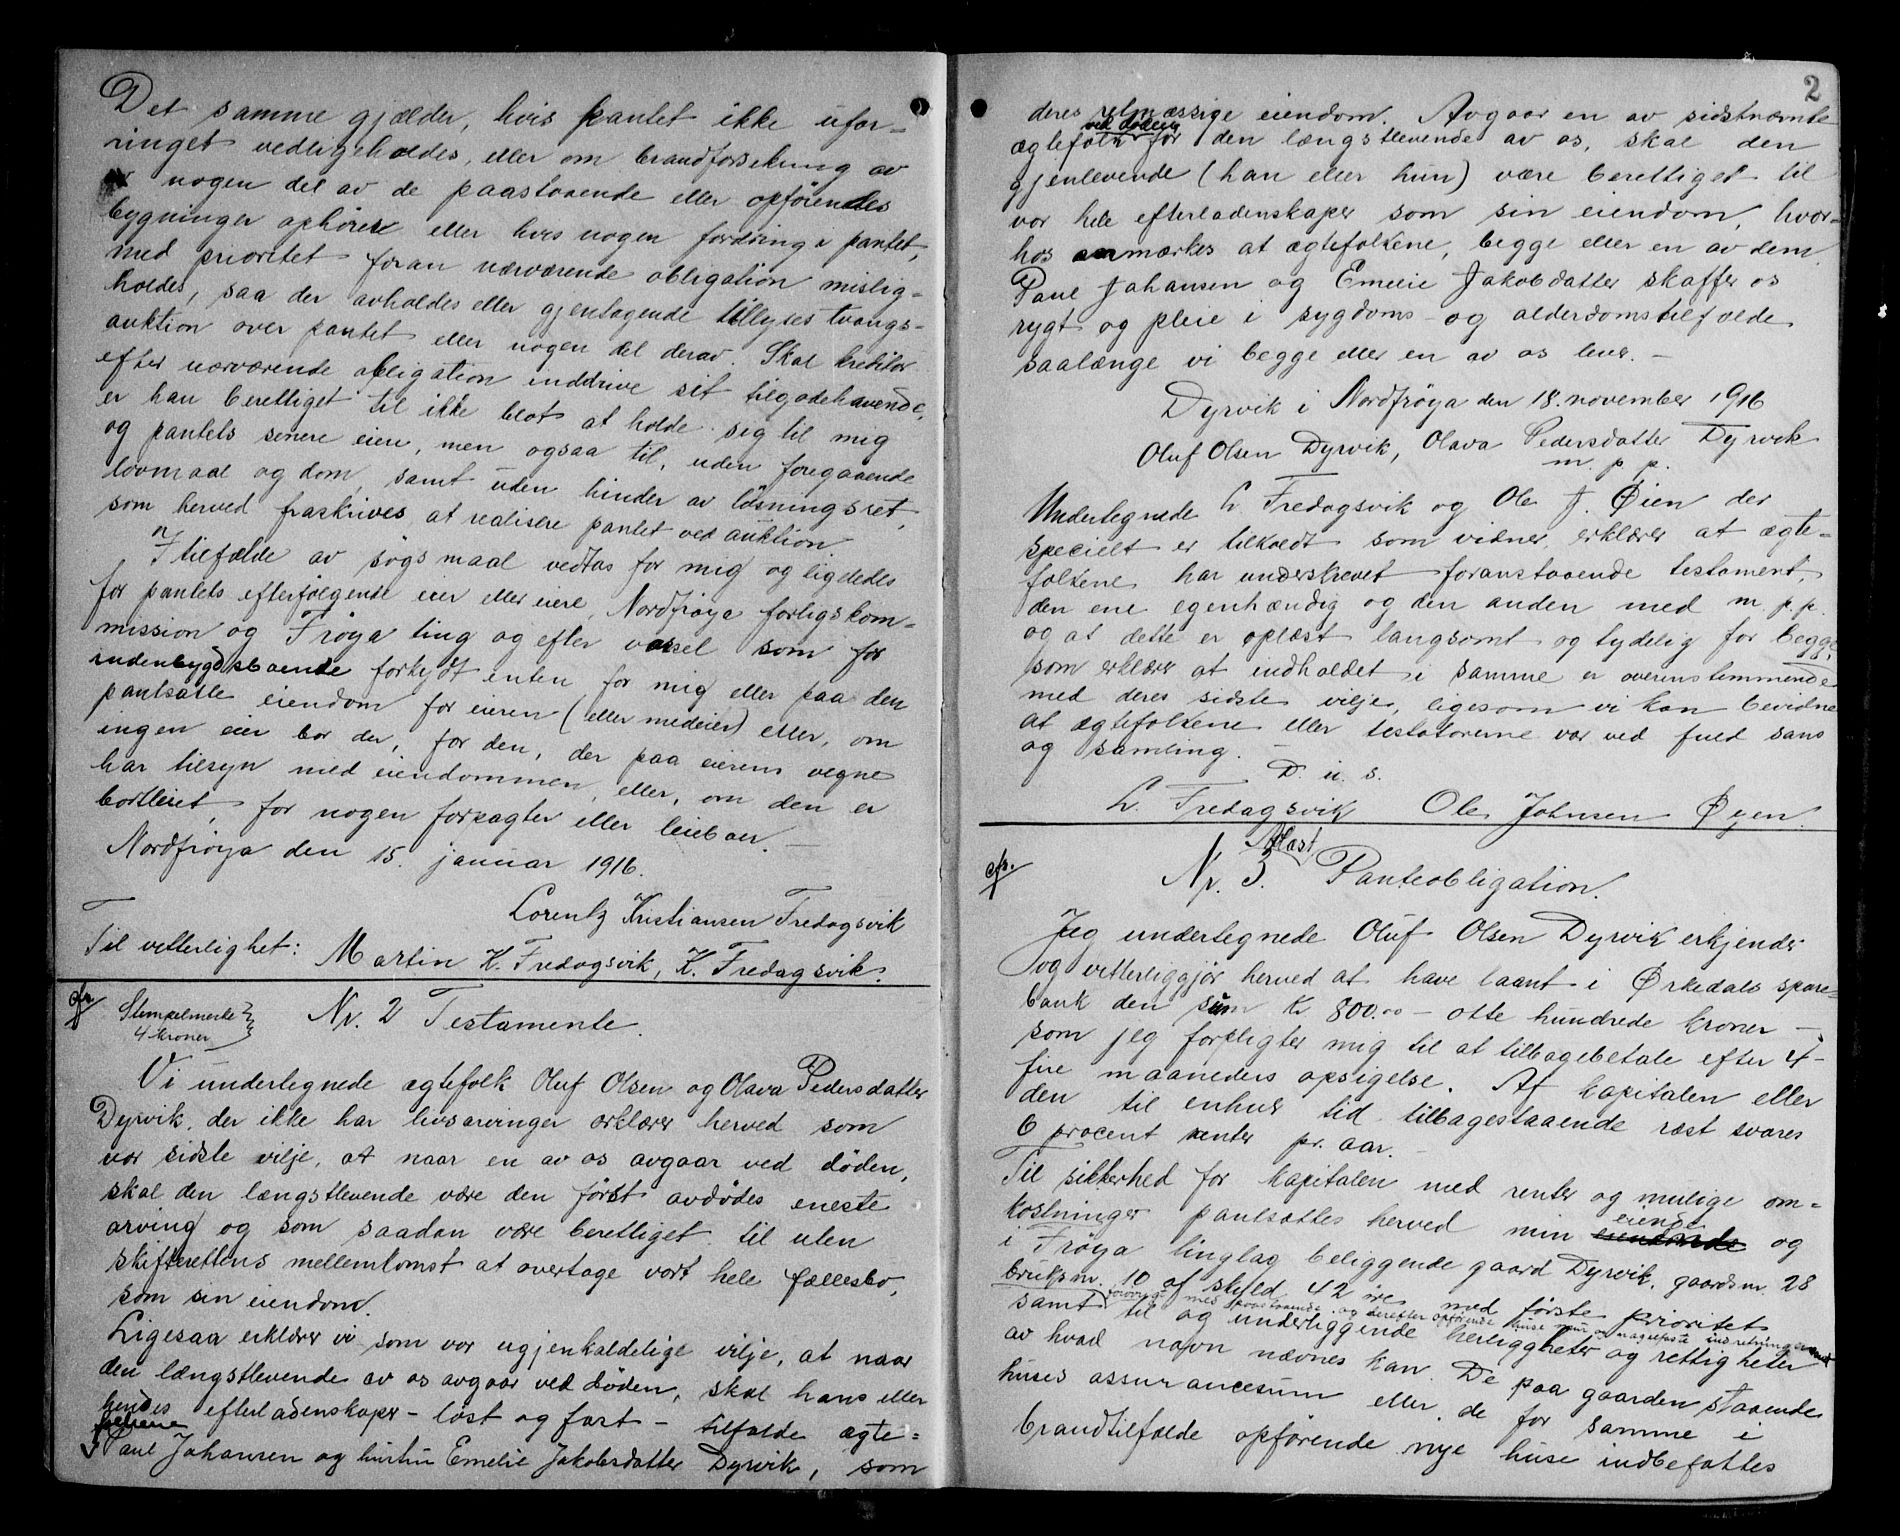 Det samme gjælder, hvis pantet ikke ufor-
ringet vedligeholdes, eller om brandforsikring av
nogen del av de paastaaende eller opførendes
bygninger ophører eller hvis nogen fordring i pantet,
med prioritet foran nærværende obligation mislig-
holdes, saa der avholdes eller gjentagende tillyses tvangs-
auktion over pantet eller nogen del derav. Skal kreditor
efter nærværende obligation inddrive sit tilgodehavende,
er han berettiget til ikke blot at holde sig til mig
og pantets senere eier, men ogsaa til, uden foregaaende
lovmaal og dom, samt uden hinder av løsningsret,
som herved fraskrives, at realisere pantet ved auktion.
I tilfælde av søgsmaal vedtas for mig og ligeledes
for pantets efterfølgende eier eller eiere, Nordfrøya forligskom-
mission og Frøya ting og efter varsel som for
indenbygdsboende forkyndt enten for mig eller paa den
pantsatte eiendom for eieren (eller medeier) eller, om
ingen eier bor der, for den, der paa eierens vegne
har tilsyn med eiendommen, eller, om den er
bortleiet, for nogen forpagter eller leieboer. —
Nordfrøya den 15. januar 1916.
Lorentz Kristiansen Fredagsvik
Til vetterlighet: Martin K. Fredagsvik, K. Fredagsvik.
cfr. Stempelmerke
4 kroner
Nr. 2 Testamente.
Vi undertegnede ægtefolk Oluf Olsen og Olava Pedersdatter
Dyrvik, der ikke har livsarvinger erklærer herved som
vor sidste vilje, at naar en av os avgaar ved døden,
skal den længstlevende være den først avdødes eneste
arving og som saadan være berettiget til uten
skifterettens mellemkomst at overtage vort hele fællesbo,
som sin eiendom.
Ligesaa erklærer vi som vor ugjenkaldelige vilje, at naar
den længstlevende av os avgaar ved døden, skal hans eller
hendes efterladenskaper – løst og fast – tilfalde ægte-
folkene
Paul Johansen og hustru Emelie Jakobsdatter Dyrvik, som
2
deres retmæssige eiendom. Avgaar en av sidstnævnte
ved døden
ægtefolk før den længstlevende av os, skal den
gjenlevende (han eller hun) være berettiget til
vor hele efterladenskaper som sin eiendom, hvor-
hos anmærkes at ægtefolkene, begge eller en av dem
Paul Johansen og Emelie Jakobsdatter skaffer os
rygt og pleie i sygdoms- og alderdomstilfælde
saalænge vi begge eller en av os lever. —
Dyrvik i Nordfrøya den 18. november 1916
Oluf Olsen Dyrvik, Olava Pedersdatter Dyrvik
m. p. p.
Undertegnede L. Fredagsvik og Ole J. Øien der
specielt er tilkaldt som vidner, erklærer at ægte-
folkene har underskrevet foranstaaende testament,
den ene egenhændig og den anden med m. p. p.
og at dette er oplæst langsomt og tydelig for begge,
som erklærer at indholdet i samme er overenstemmende
med deres sidste vilje, ligesom vi kan bevidne
at ægtefolkene eller testatorerne var ved fuld sans
og samling. —
D. u. s.
L. Fredagsvik Ole Johnsen Øyen.
cfr. Avlæst
Nr. 3. Panteobligation.
Jeg undertegnede Oluf Olsen Dyrvik erkjender
og vitterliggjør herved at have laant i Ørkedals spare-
bank den sum Kr 800.00 – otte hundrede kroner –
som jeg forpligter mig til at tilbagebetale efter 4 –
fire maaneders opsigelse. Af kapitalen eller
den til enhver tid tilbagestaaende rest svares
6 procent renter pr. aar. –
Til sikkerhed for kapitalen med renter og mulige om-
eiende
kostninger pantsættes herved min eiendonde og
i Frøya tinglag beliggende gaard Dyrvik, gaardsnr. 28
bruksnr. 10 af skyld 42 øre med første prioritet
forøvrigt med paastaaende og derefter opførende huse mur og naglefaste indretninger
samt til og underliggende herligheter og rettigheter
av hvad navn nævnes kan. De paa gaarden staaende
huses assurancesum eller de for samme i
brandtilfælde opførende nye huse indbefattes